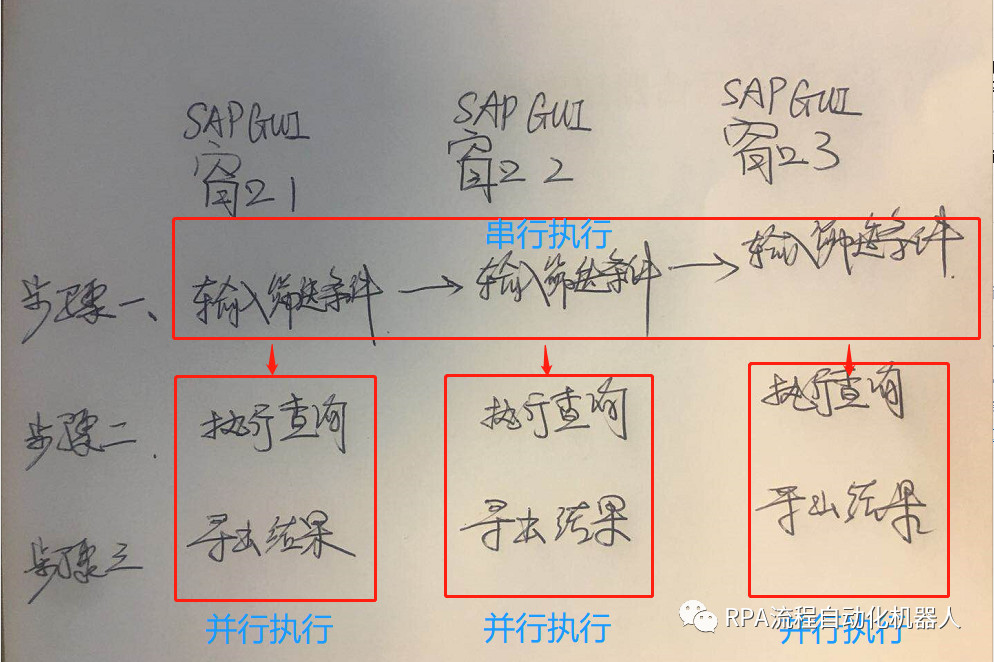 SAP GUI SAP GUI SAP GUI
窗口1 窗口2 窗口3
串行执行
步骤一、 输入筛选条件 → 输入筛选条件 → 输入筛选条件
步骤二、 执行查询 执行查询 执行查询
步骤三 导出结果 导出结果 导出结果
并行执行 并行执行 并行执行
RPA流程自动化机器人